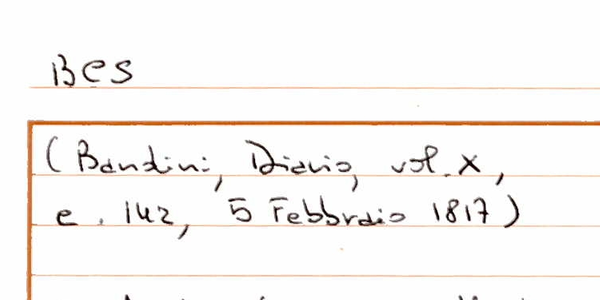 Bes
(Bandini, Diario, vol. X,
e. 142, 5 Febbraio 1817)